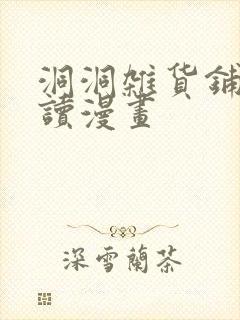 洞洞雜貨鋪
讀漫畫
深雪蘭茶